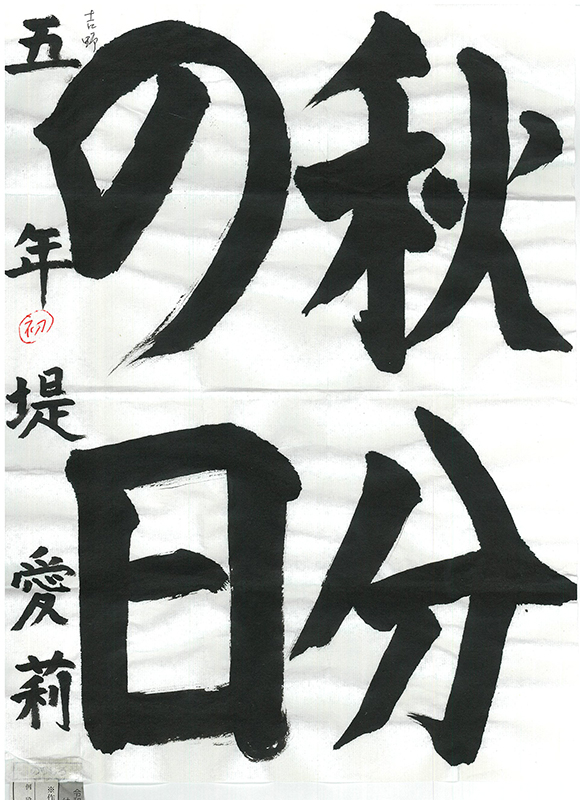 秋分
の日
吉野
五年 堤 愛莉
初